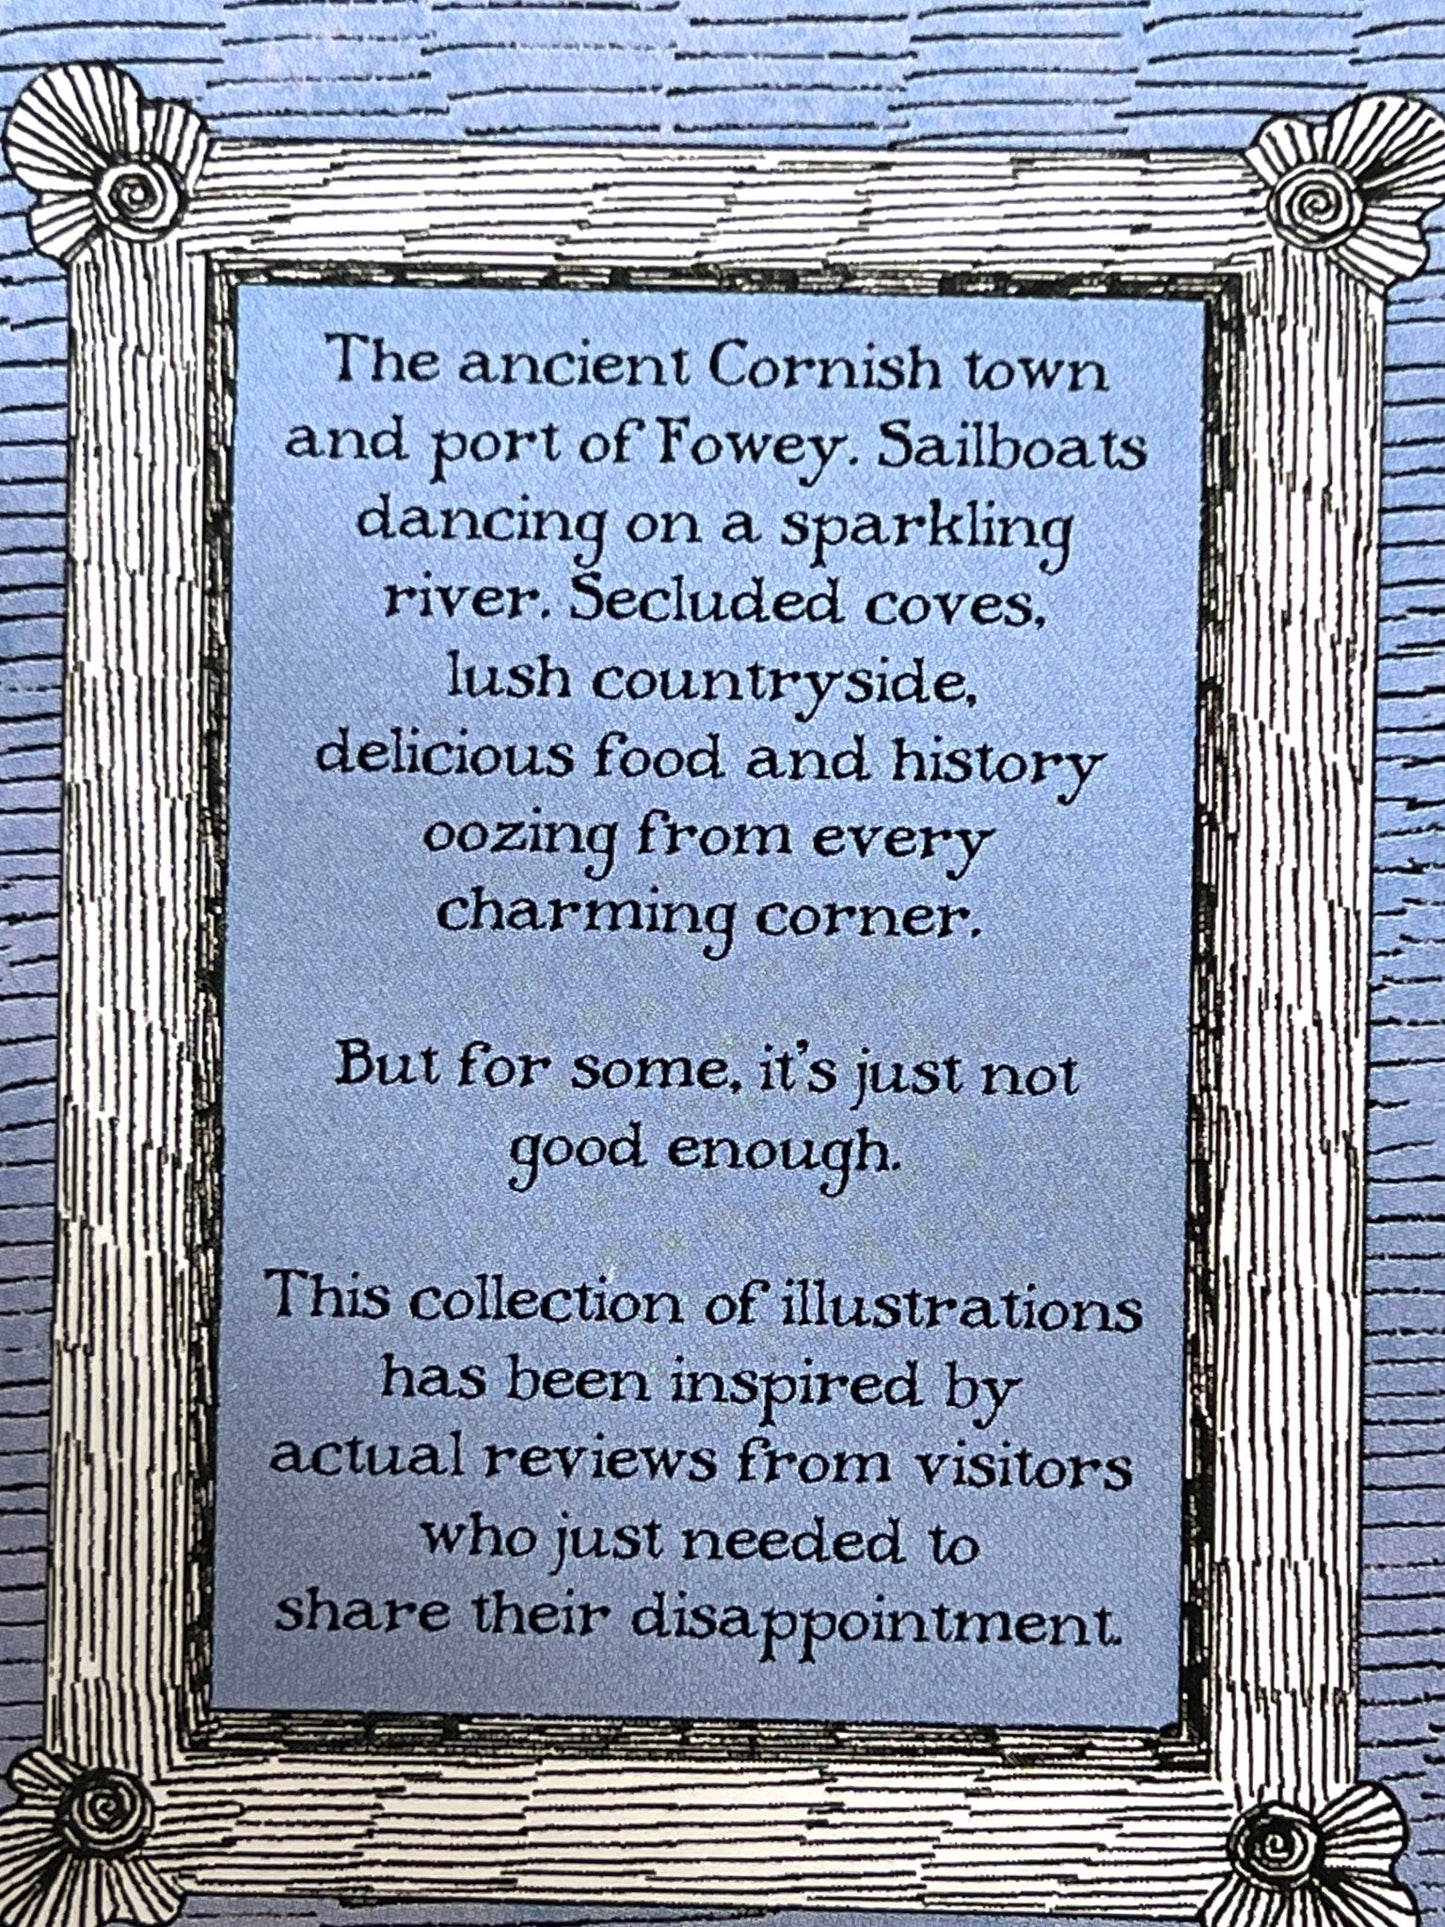 The ancient Cornish town
and port of Fowey. Sailboats
dancing on a sparkling
river. Secluded coves,
lush countryside,
delicious food and history
oozing from every
charming corner.
But for some, it's just not
good enough.
This collection of illustrations
has been inspired by
actual reviews from visitors
who just needed to
share their disappointment.